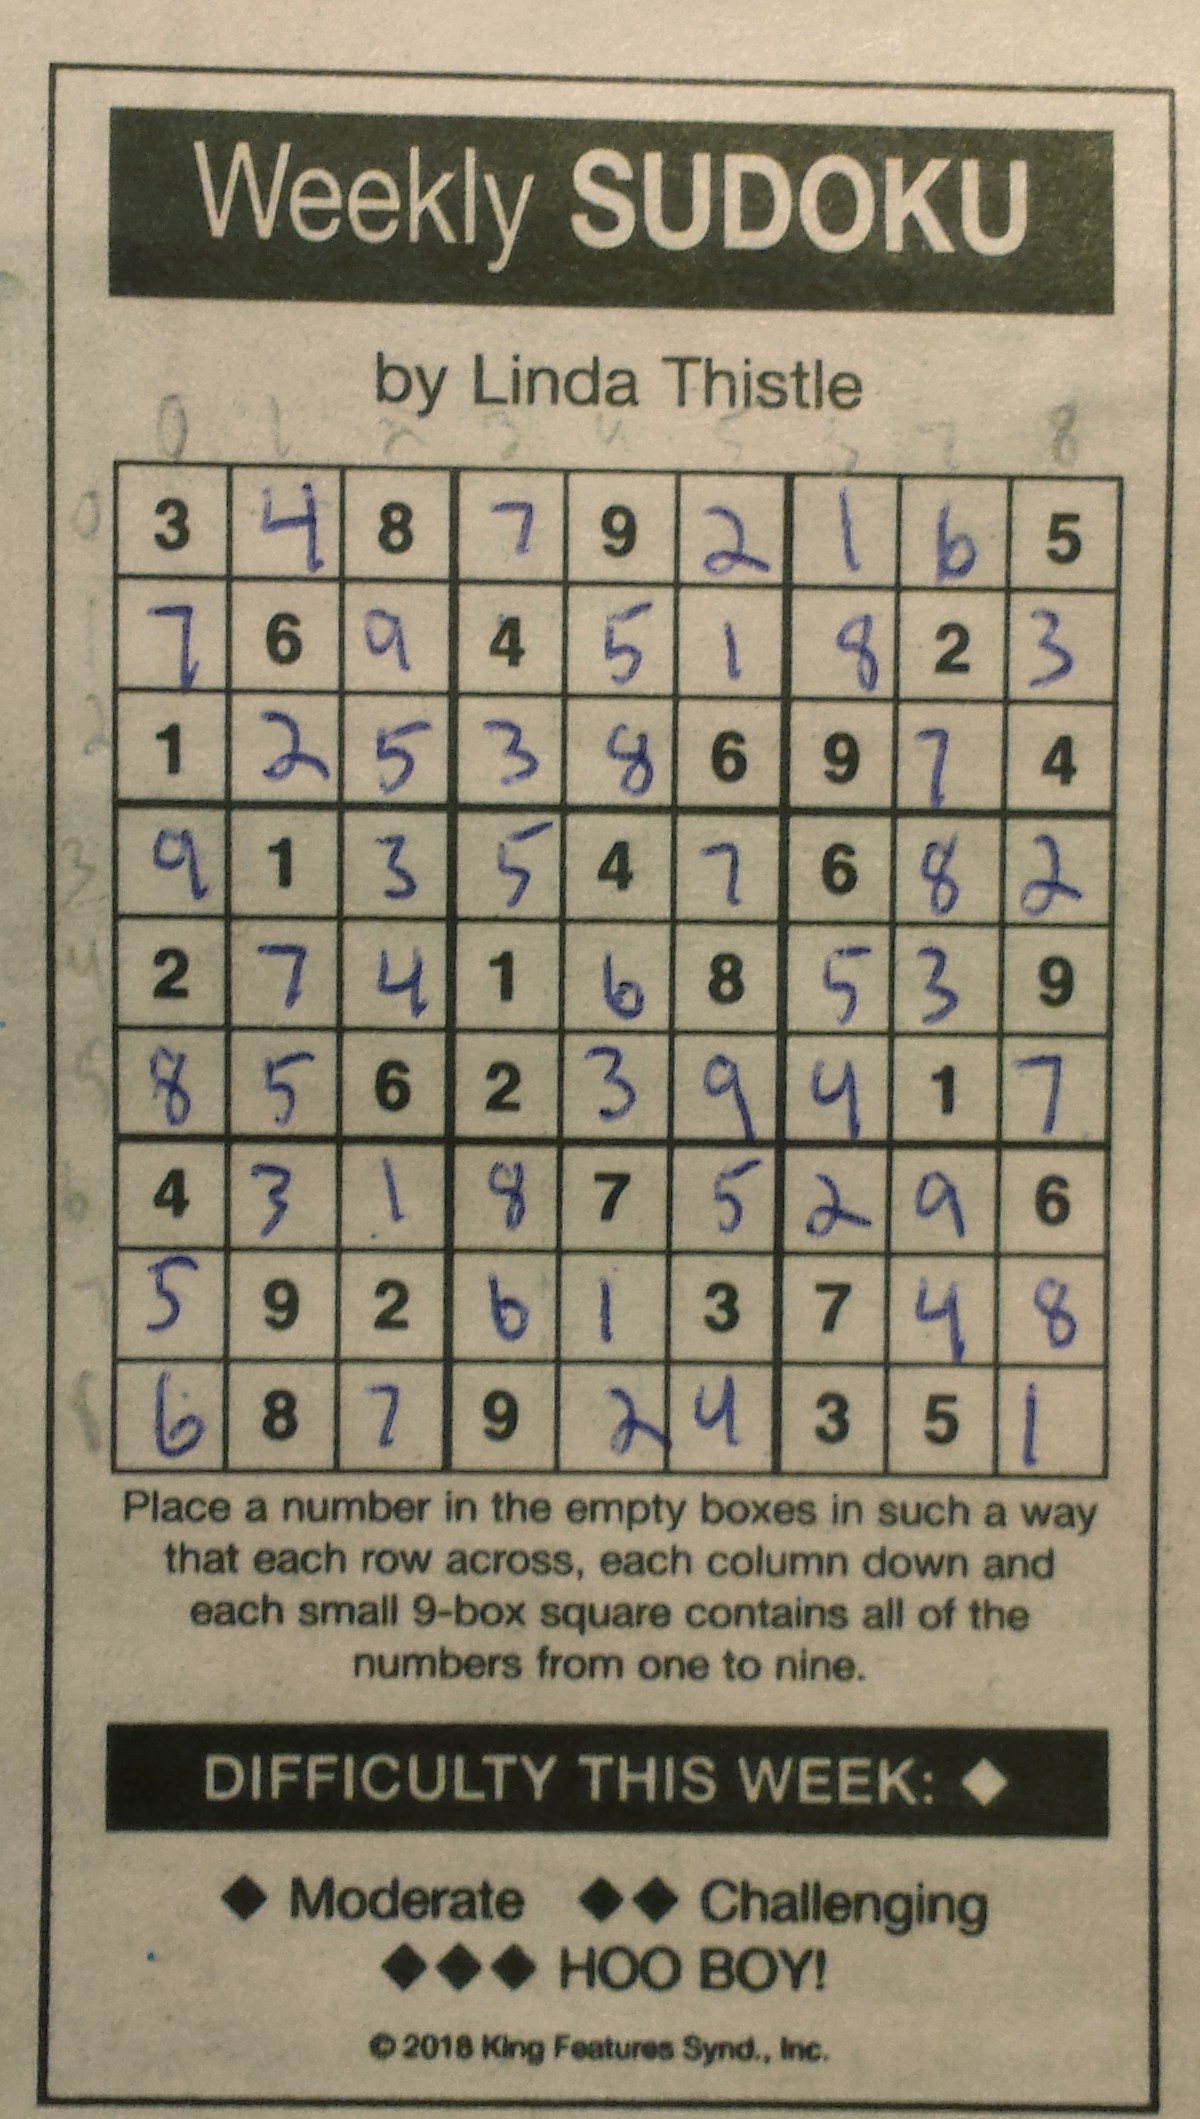 Weekly SUDOKU
by Linda Thistle
0 1 2 3 4 5 7 8
0 3 4 8 7 9 2 1 6 5
1 7 6 9 4 5 1 8 2 3
2 1 2 5 3 8 6 9 7 4
3 9 1 3 5 4 7 6 8 2
4 2 7 4 1 6 8 5 3 9
5 8 5 6 2 3 9 4 1 7
6 4 3 1 8 7 5 2 9 6
7 5 9 2 6 1 3 7 4 8
8 6 8 7 9 2 4 3 5 1
Place a number in the empty boxes in such a way
that each row across, each column down and
each small 9-box square contains all of the
numbers from one to nine.
DIFFICULTY THIS WEEK: ◆
◆ Moderate ◆◆ Challenging
◆◆◆ HOO BOY!
© 2018 King Features Synd., Inc.